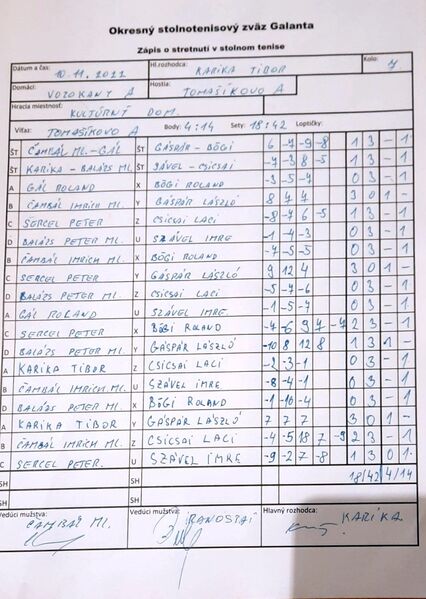 Okresný stolnotenisový zväz Galanta
Zápis o stretnutí v stolnom tenise
Dátum a čas: 10.11.2022 Hl.rozhodca: KARIKA TIBOR Kolo: 7
Domáci: VOZOKANY A Hostia: TOMAŠÍKOVO A
Hracia miestnosť: KULTÚRNY DOM.
Víťaz: TOMAŠÍKOVO A Body: 4:14 Sety: 18:42 Loptičky:
ŠT ČAMBÁL ML.-GÁL ŠT GÁSPÁR - BÖGI 6 -7 -9 -8 1 3 - 1
ŠT KARIKA - BALÁZS ML ŠT SZÁVEL - CSICSAI -7 -3 8 -5 1 3 - 1
A GÁL ROLAND X BÖGI ROLAND -3 -5 -7 0 3 - 1
B ČAMBÁL IMRICH ML. Y GÁSPÁR LÁSZLÓ 8 7 7 3 0 1 -
C SERCEL PETER Z CSICSAI LACI -8 -7 6 -5 1 3 - 1
D BALÁZS PETER ML. U SZÁVEL IMRE -1 -4 -3 0 3 - 1
B ČAMBÁL IMRICH ML. X BÖGI ROLAND -7 -5 -5 0 3 - 1
C SERCEL PETER Y GÁSPÁR LÁSZLÓ 9 12 4 3 0 1 -
D BALÁZS PETER ML. Z CSICSAI LACI -5 -7 -6 0 3 - 1
A GÁL ROLAND U SZÁVEL IMRE -1 -5 -7 0 3 - 1
C SERCEL PETER X BÖGI ROLAND -7 -6 9 7 -7 2 3 - 1
D BALÁZS PETER ML. Y GÁSPÁR LÁSZLÓ -10 8 12 8 1 3 1 -
A KARIKA TIBOR Z CSICSAI LACI -2 -3 -1 0 3 - 1
B ČAMBÁL IMRICH ML. U SZÁVEL IMRE -8 -4 -1 0 3 - 1
D BALÁZS PETER ML. X BÖGI ROLAND -1 -10 -4 0 3 - 1
A KARIKA TIBOR Y GÁSPÁR LÁSZLÓ 7 7 7 3 0 1 -
B ČAMBÁL IMRICH ML Z CSICSAI LACI -4 -5 18 7 -9 2 3 - 1
C SERCEL PETER. U SZÁVEL IMRE -9 -2 7 -8 1 3 0 1
SH SH 18/42 4/14
SH SH
Vedúci mužstva: Vedúci mužstva: Hlavný rozhodca:
ČAMBÁL ML. KARIKA